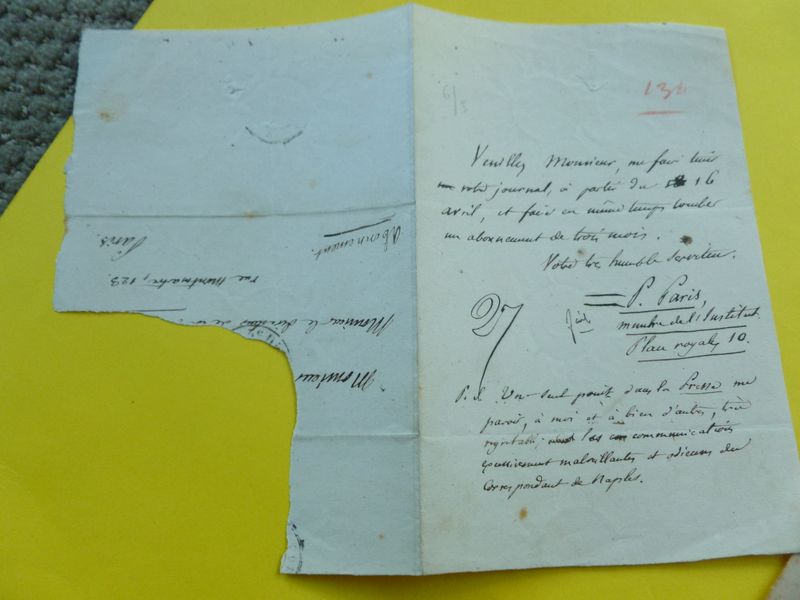 6/3
134
Veuillez Monsieur, me faire tenir
votre journal, à partir du 16
avril, et faire en même temps toucher
un abonnement de trois mois.
Votre très humble serviteur.
P. Paris,
membre de l'Institut.
Place royale, 10.
P. S. Un seul point dans la Presse me
paroit, à moi et à bien d'autres, très
regrettable; les communications
excessivement malveillantes et odieuses du
Correspondant de Naples.
Monsieur
Monsieur le Directeur de
rue Montmartre, 123.
Paris.
Abonnement